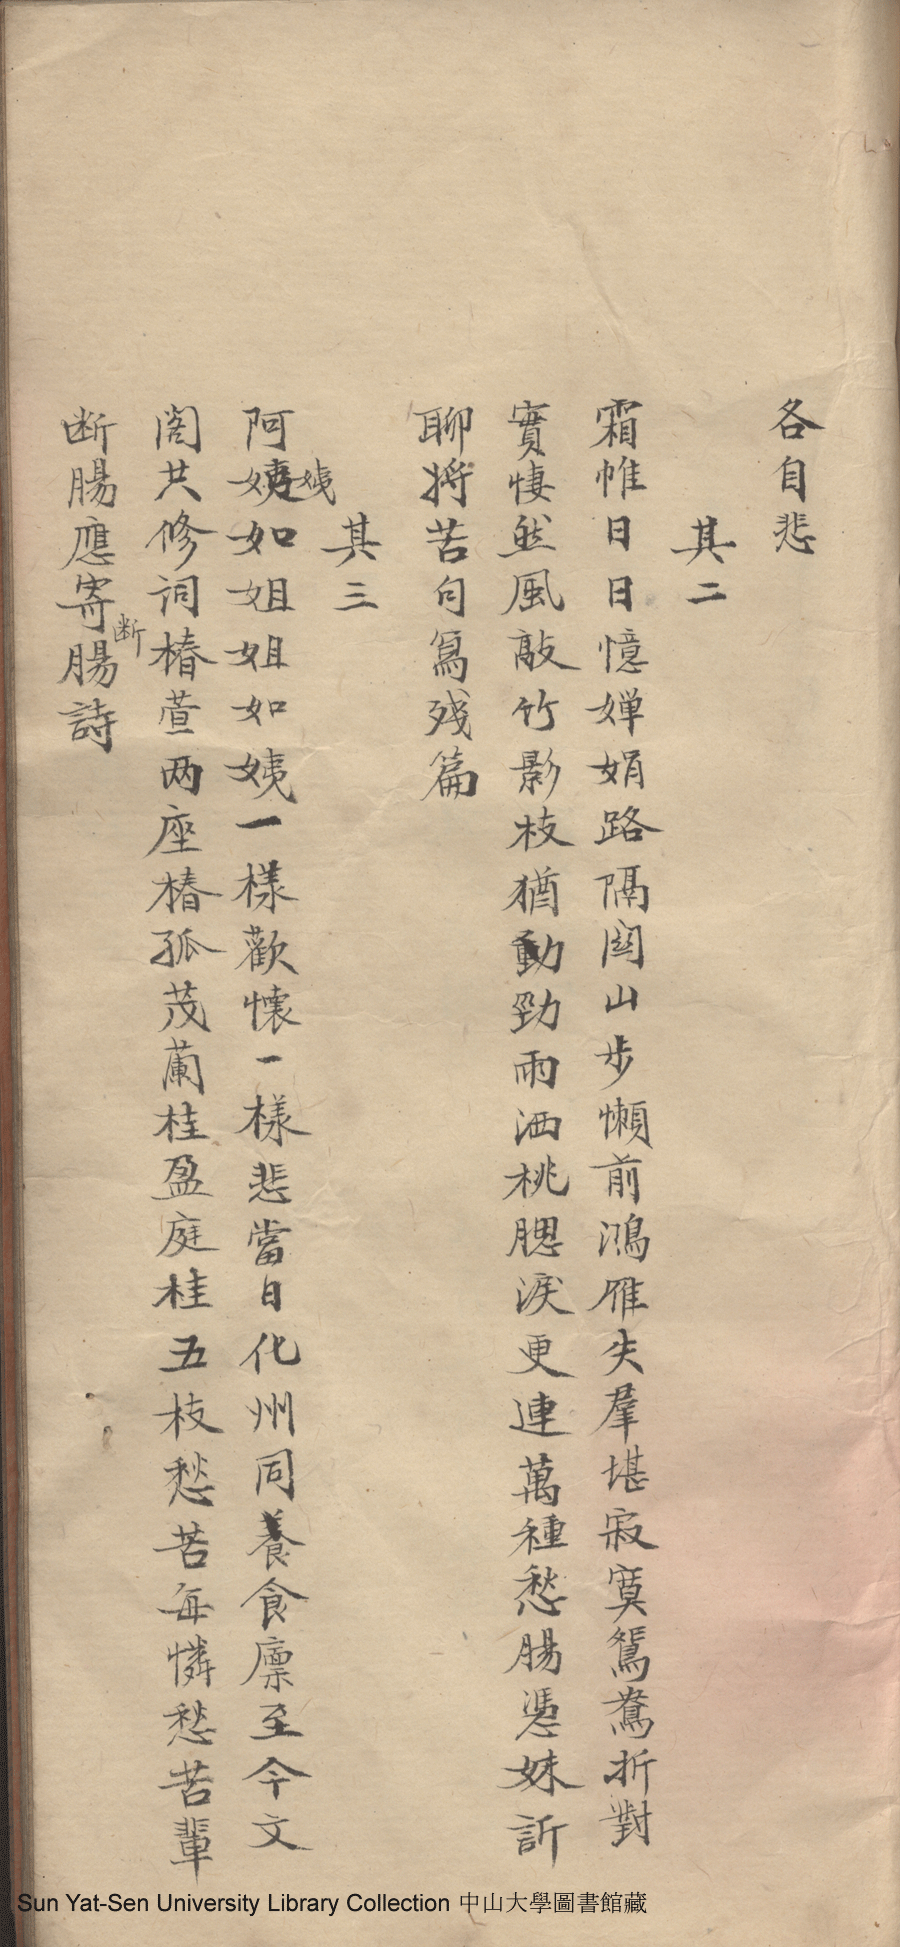 各自悲
其二
霜帷日日憶嬋娟路隔関山步懶前鴻雁失羣堪寂寞鴛鴦折對
實悽然風敲竹影枝猶動勁雨洒桃腮淚更連萬種愁腸憑妹訴
聊將苦句寫残篇
其三
阿姨姨如姐姐如姨一樣歡懷一樣悲當日化州同養食廩至今文
閣共修词椿萱两座椿孤茂蘭桂盈庭桂五枝愁苦每憐愁苦輩
断腸應寄断腸詩
Sun Yat-Sen University Library Collection 中山大學圖書館藏